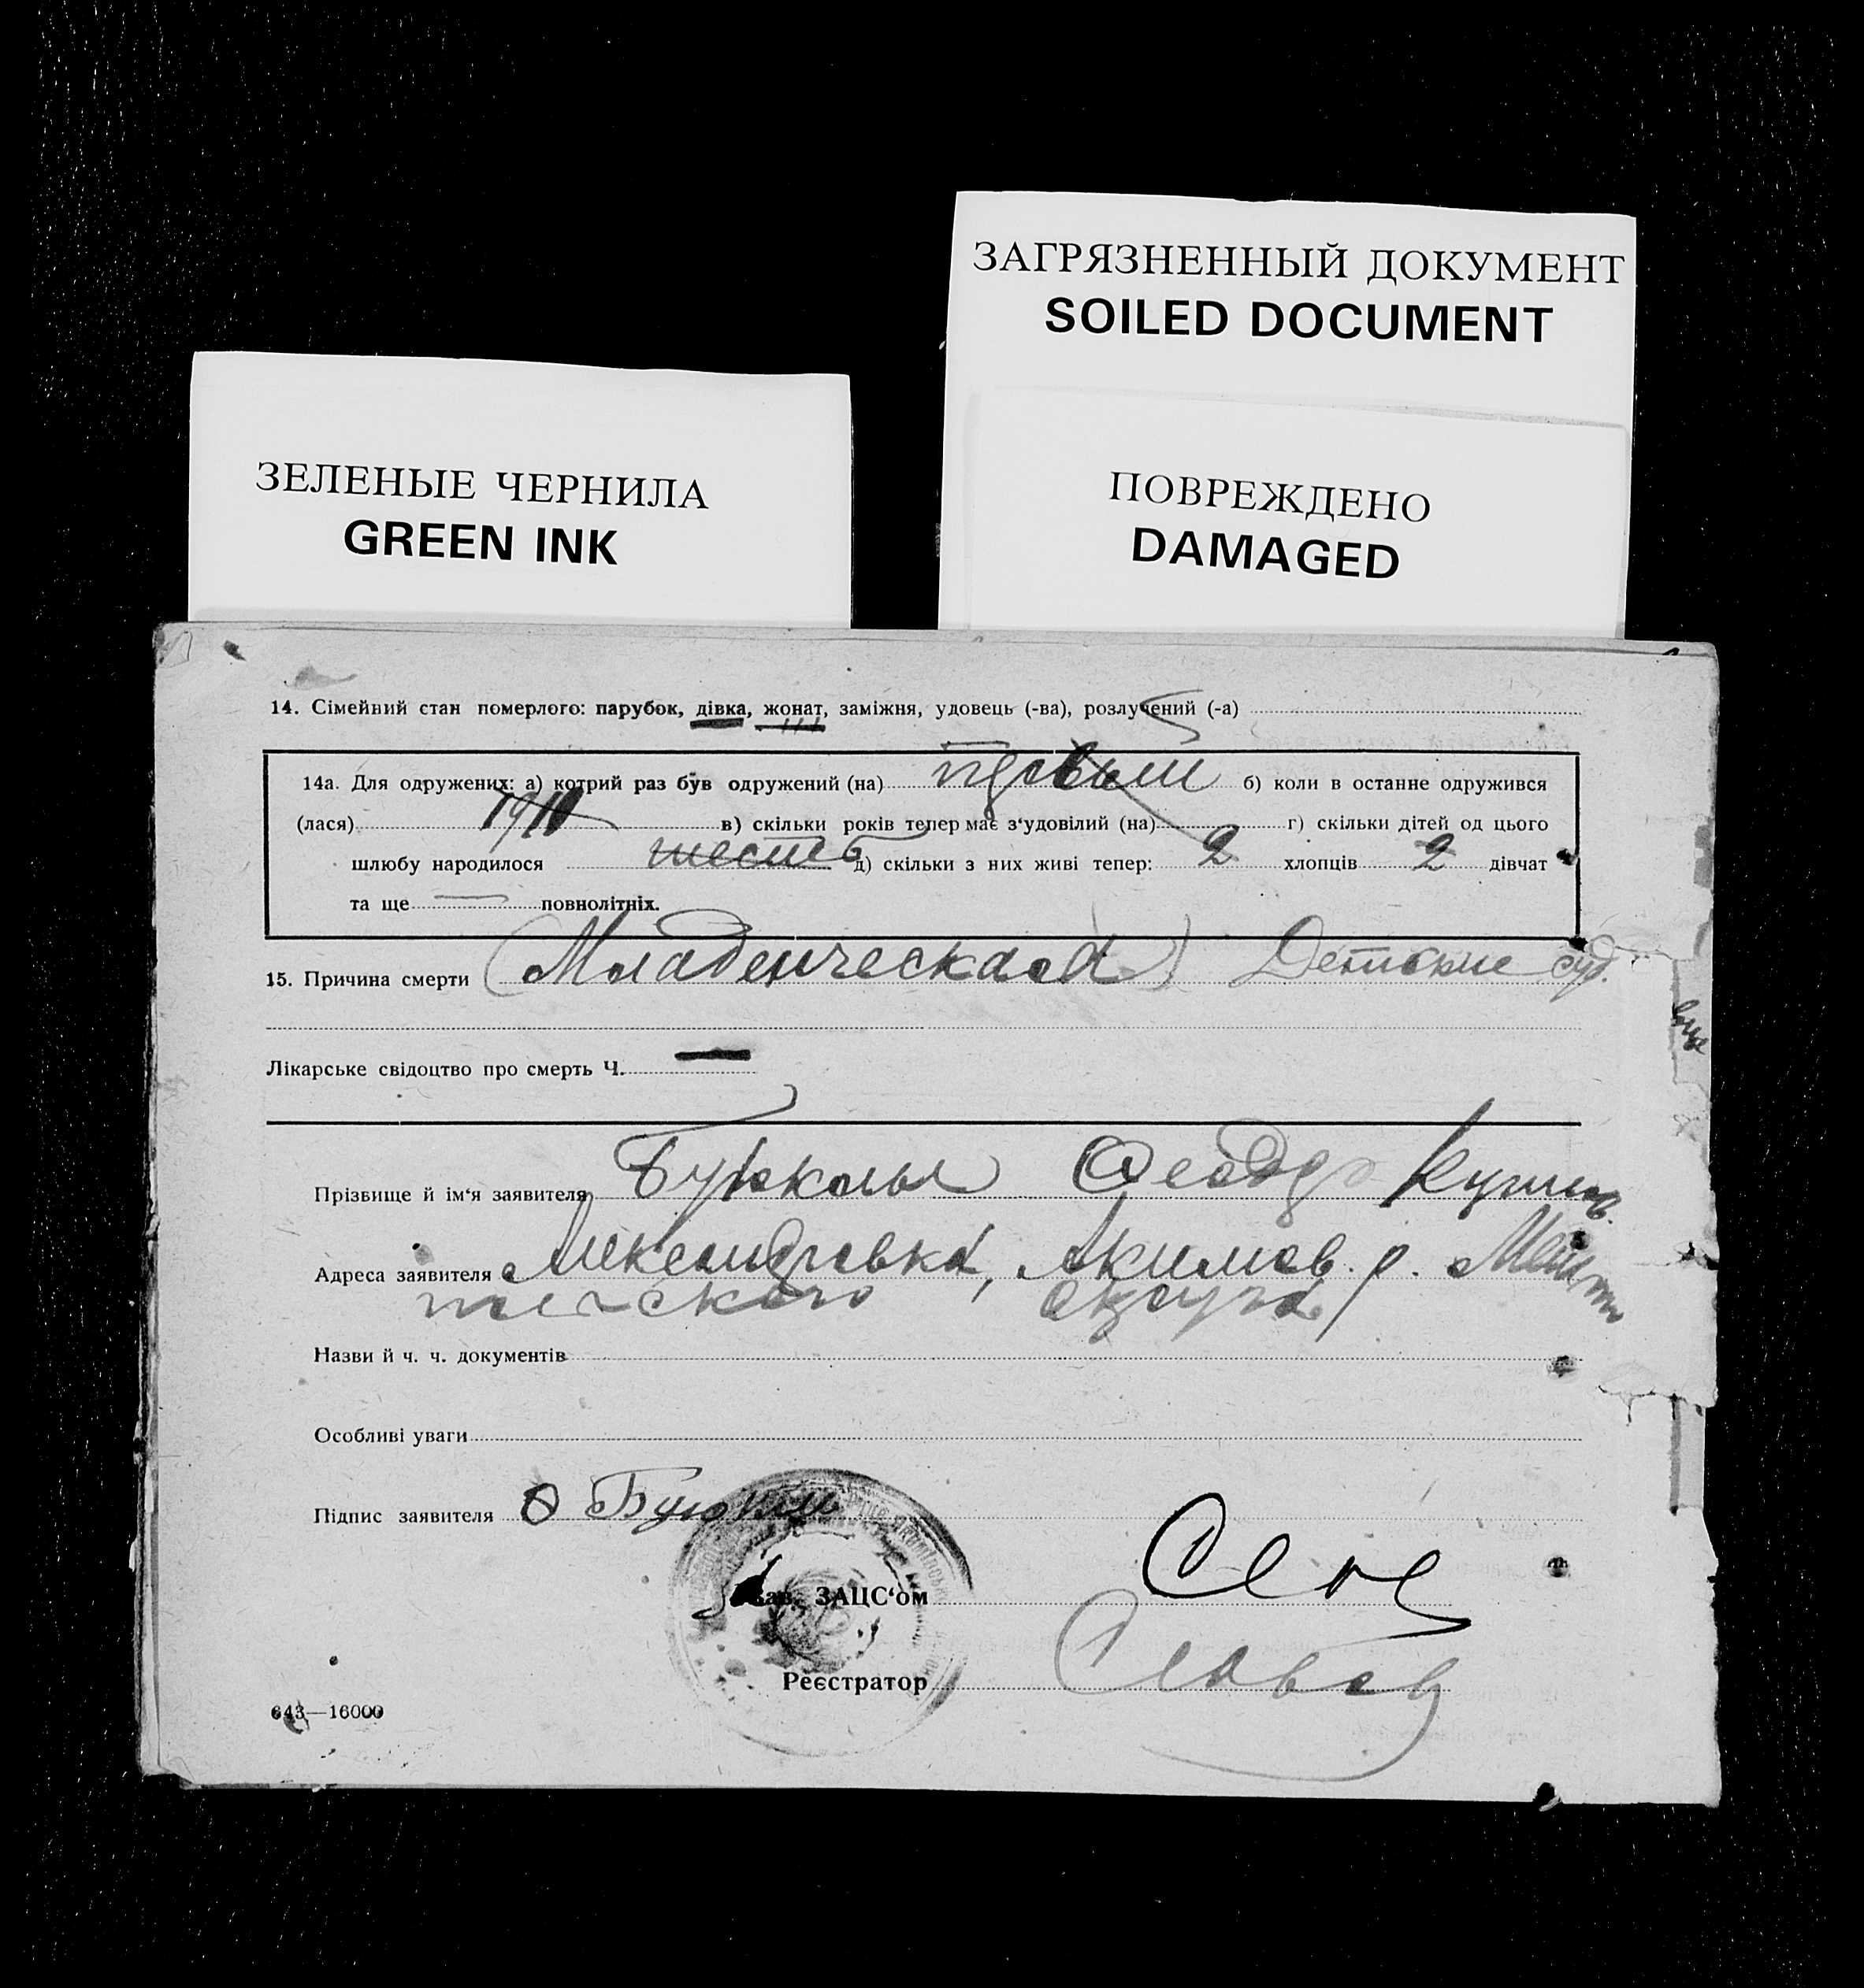 ЗАГРЯЗНЕННЫЙ ДОКУМЕНТ
SOILED DOCUMENT
ЗЕЛЕНЫЕ ЧЕРНИЛА
GREEN INK
ПОВРЕЖДЕНО
DAMAGED
14. Сімейний стан померлого: парубок, дівка, жонат, заміжня, удовець (-ва), розлучений (-а)
14а. Для одружених: а) котрий раз був одружений (на) первый б) коли в останне одружився
(лася) 1910 в) скільки років тепер має з‘удовілий (на) г) скільки дітей од цього
шлюбу народилося шесть д) скільки з них живі тепер: 2 хлопців 2 дівчат
та ще — повнолітніх.
15. Причина смерти (Младенческая) Детские суд.
Лікарське свідоцтво про смерть Ч. —
Прізвище й ім‘я заявителя Федор
Адреса заявителя Александровка, Акимов. р. Мелито
польского округа
Назви й ч. ч. документів
Особливі уваги
Підпис заявителя
Зав. ЗАЦС‘ом
Реєстратор
643—16000